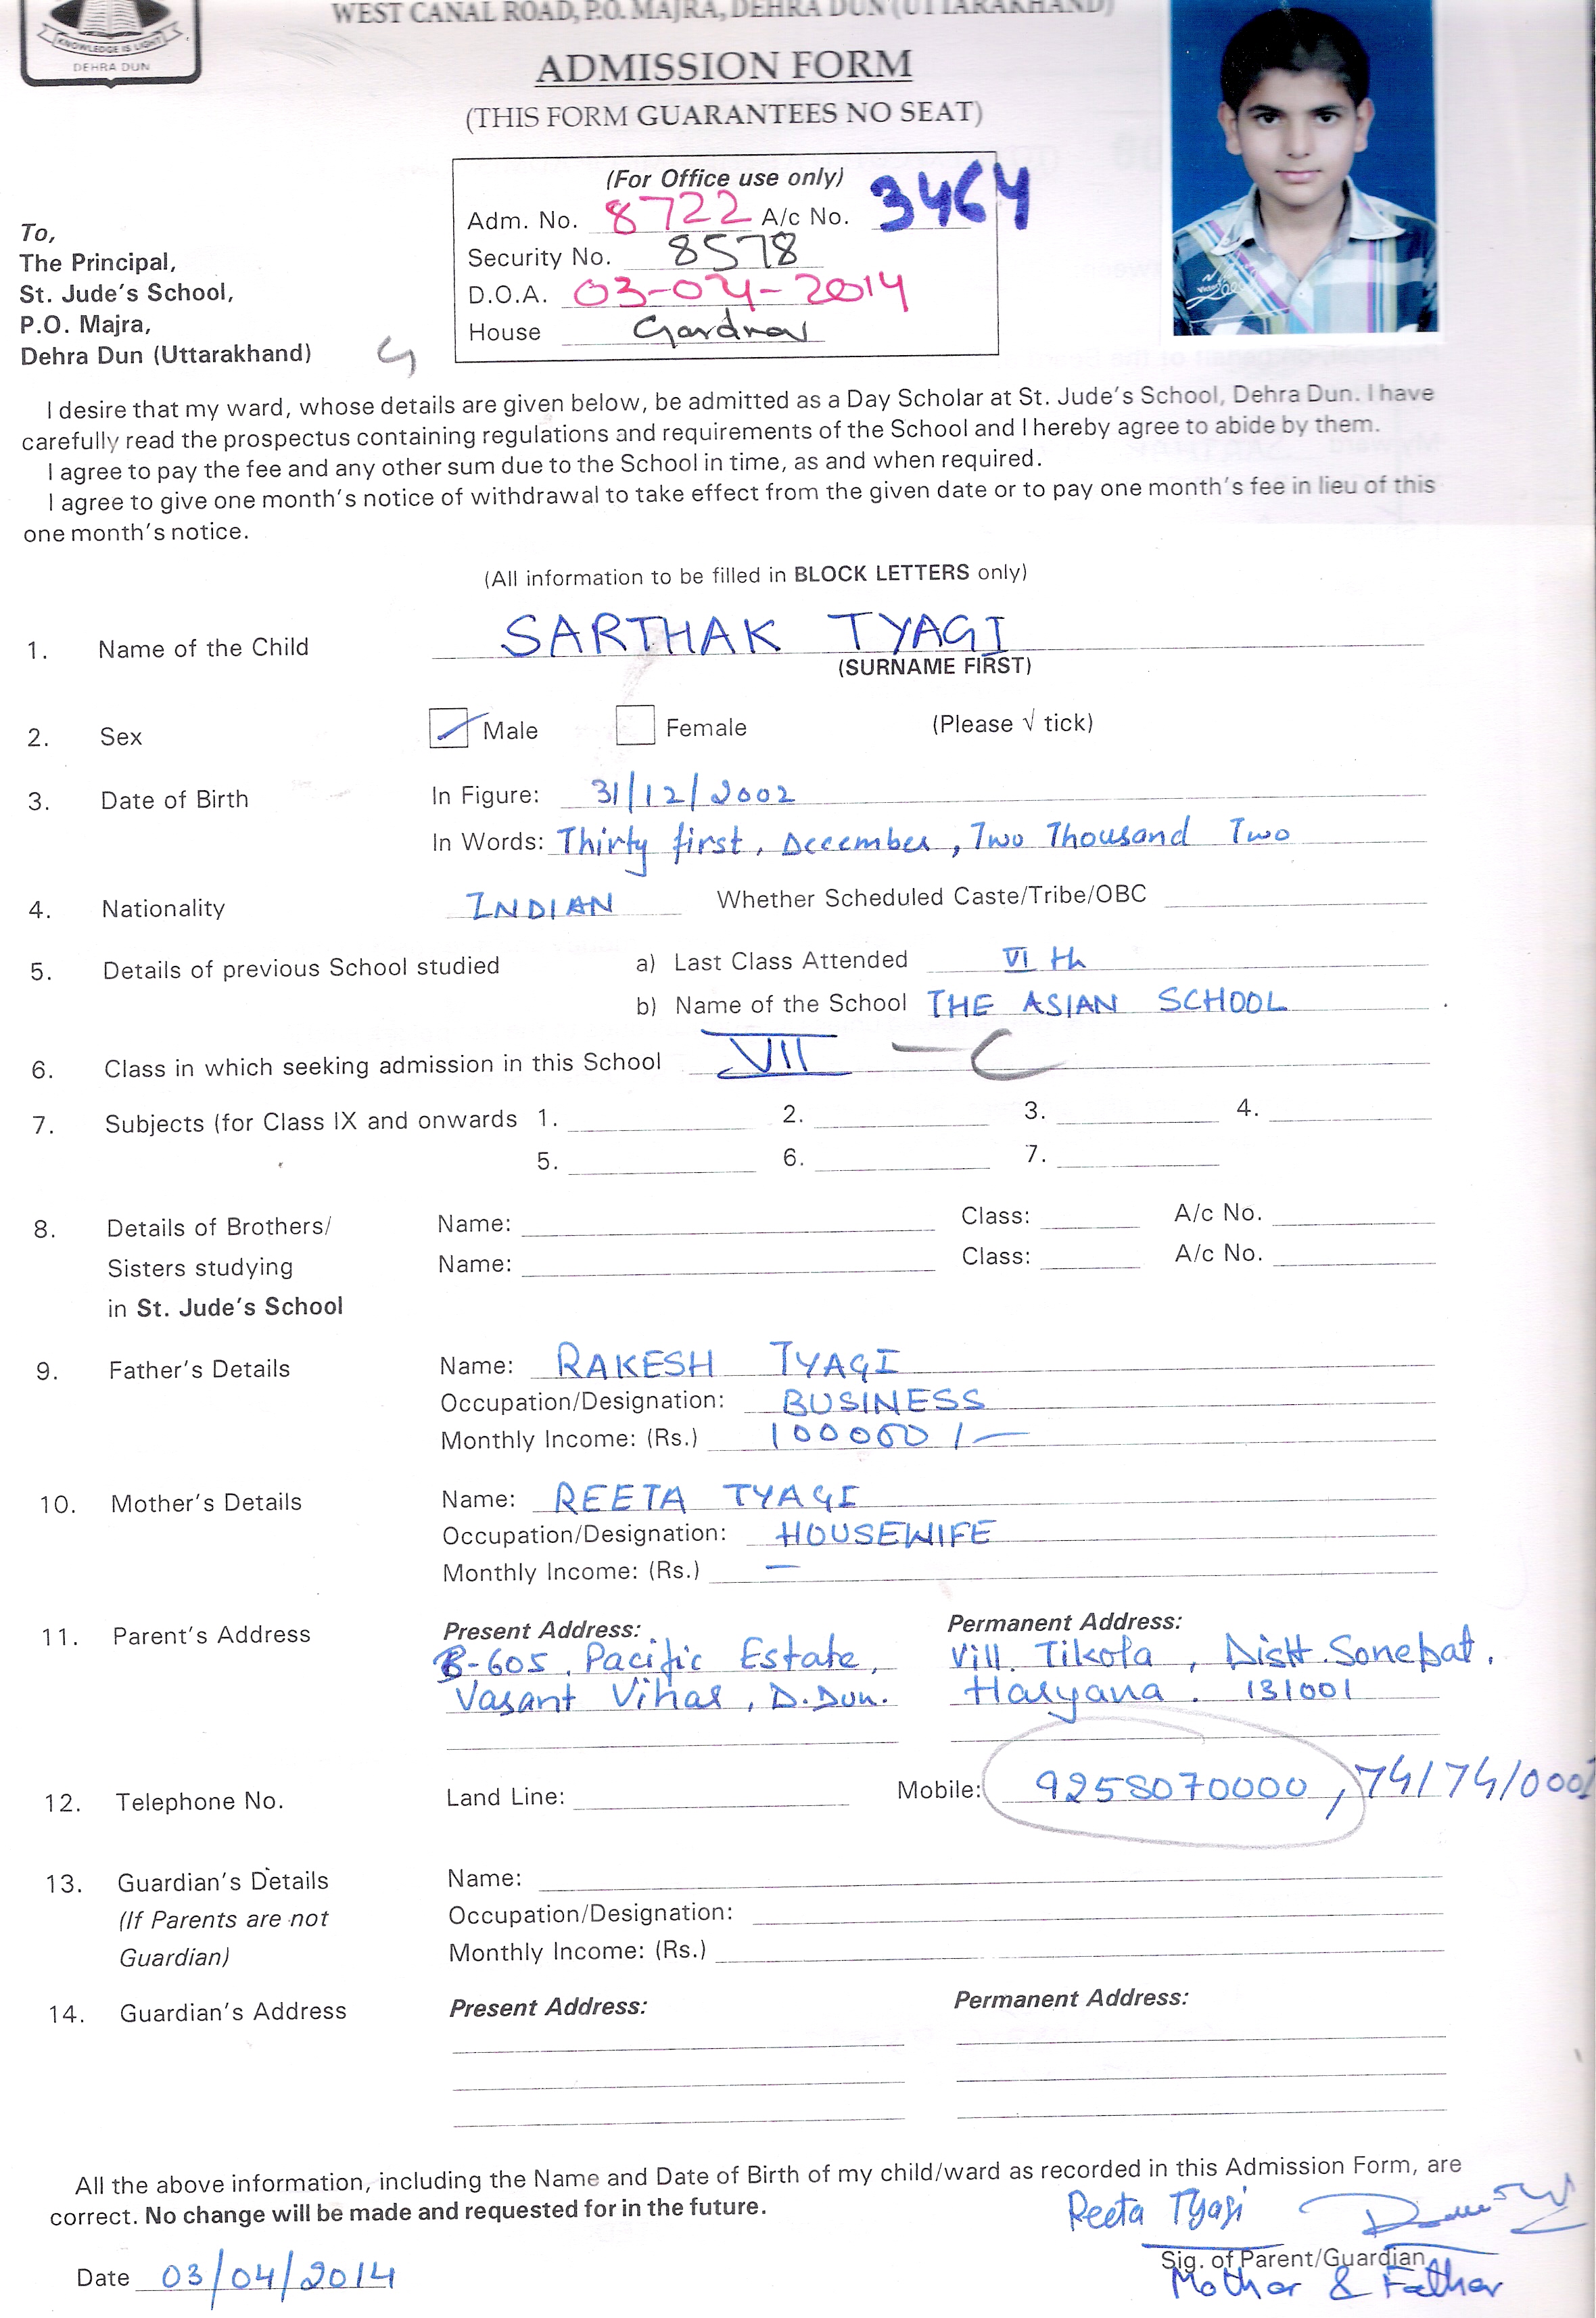 WEST CANAL ROAD, P.O. MAJRA, DEHRA DUN (UTTARAKHAND)
KNOWLEDGE IS LIGHT
DEHRA DUN
ADMISSION FORM
(THIS FORM GUARANTEES NO SEAT)
(For Office use only)
Adm. No. 8722 A/c No. 3464
Security No. 8578
D.O.A. 03-04-2014
House Gardner
To,
The Principal,
St. Jude's School,
P.O. Majra,
Dehra Dun (Uttarakhand)
I desire that my ward, whose details are given below, be admitted as a Day Scholar at St. Jude's School, Dehra Dun. I have
carefully read the prospectus containing regulations and requirements of the School and I hereby agree to abide by them.
I agree to pay the fee and any other sum due to the School in time, as and when required.
I agree to give one month's notice of withdrawal to take effect from the given date or to pay one month's fee in lieu of this
one month's notice.
(All information to be filled in BLOCK LETTERS only)
1. Name of the Child SARTHAK TYAGI
(SURNAME FIRST)
2. Sex Male Female (Please √ tick)
3. Date of Birth In Figure: 31/12/2002
In Words: Thirty first, December, Two Thousand Two
4. Nationality INDIAN Whether Scheduled Caste/Tribe/OBC
5. Details of previous School studied a) Last Class Attended VI th
b) Name of the School THE ASIAN SCHOOL
6. Class in which seeking admission in this School VII - C
7. Subjects (for Class IX and onwards 1. 2. 3. 4.
5. 6. 7.
8. Details of Brothers/ Name: Class: A/c No.
Sisters studying Name: Class: A/c No.
in St. Jude's School
9. Father's Details Name: RAKESH TYAGI
Occupation/Designation: BUSINESS
Monthly Income: (Rs.) 100000/-
10. Mother's Details Name: REETA TYAGI
Occupation/Designation: HOUSEWIFE
Monthly Income: (Rs.) -
11. Parent's Address Present Address: Permanent Address:
B-605, Pacific Estate, Vill. Tikola, Distt. Sonepat,
Vasant Vihar, D.Dun. Haryana. 131001
12. Telephone No. Land Line: Mobile: 9258070000, 74/74/0001
13. Guardian's Details Name:
(If Parents are not Occupation/Designation:
Guardian) Monthly Income: (Rs.)
14. Guardian's Address Present Address: Permanent Address:
All the above information, including the Name and Date of Birth of my child/ward as recorded in this Admission Form, are
correct. No change will be made and requested for in the future.
Reeta Tyagi
Date 03/04/2014 Sig. of Parent/Guardian
Mother & Father